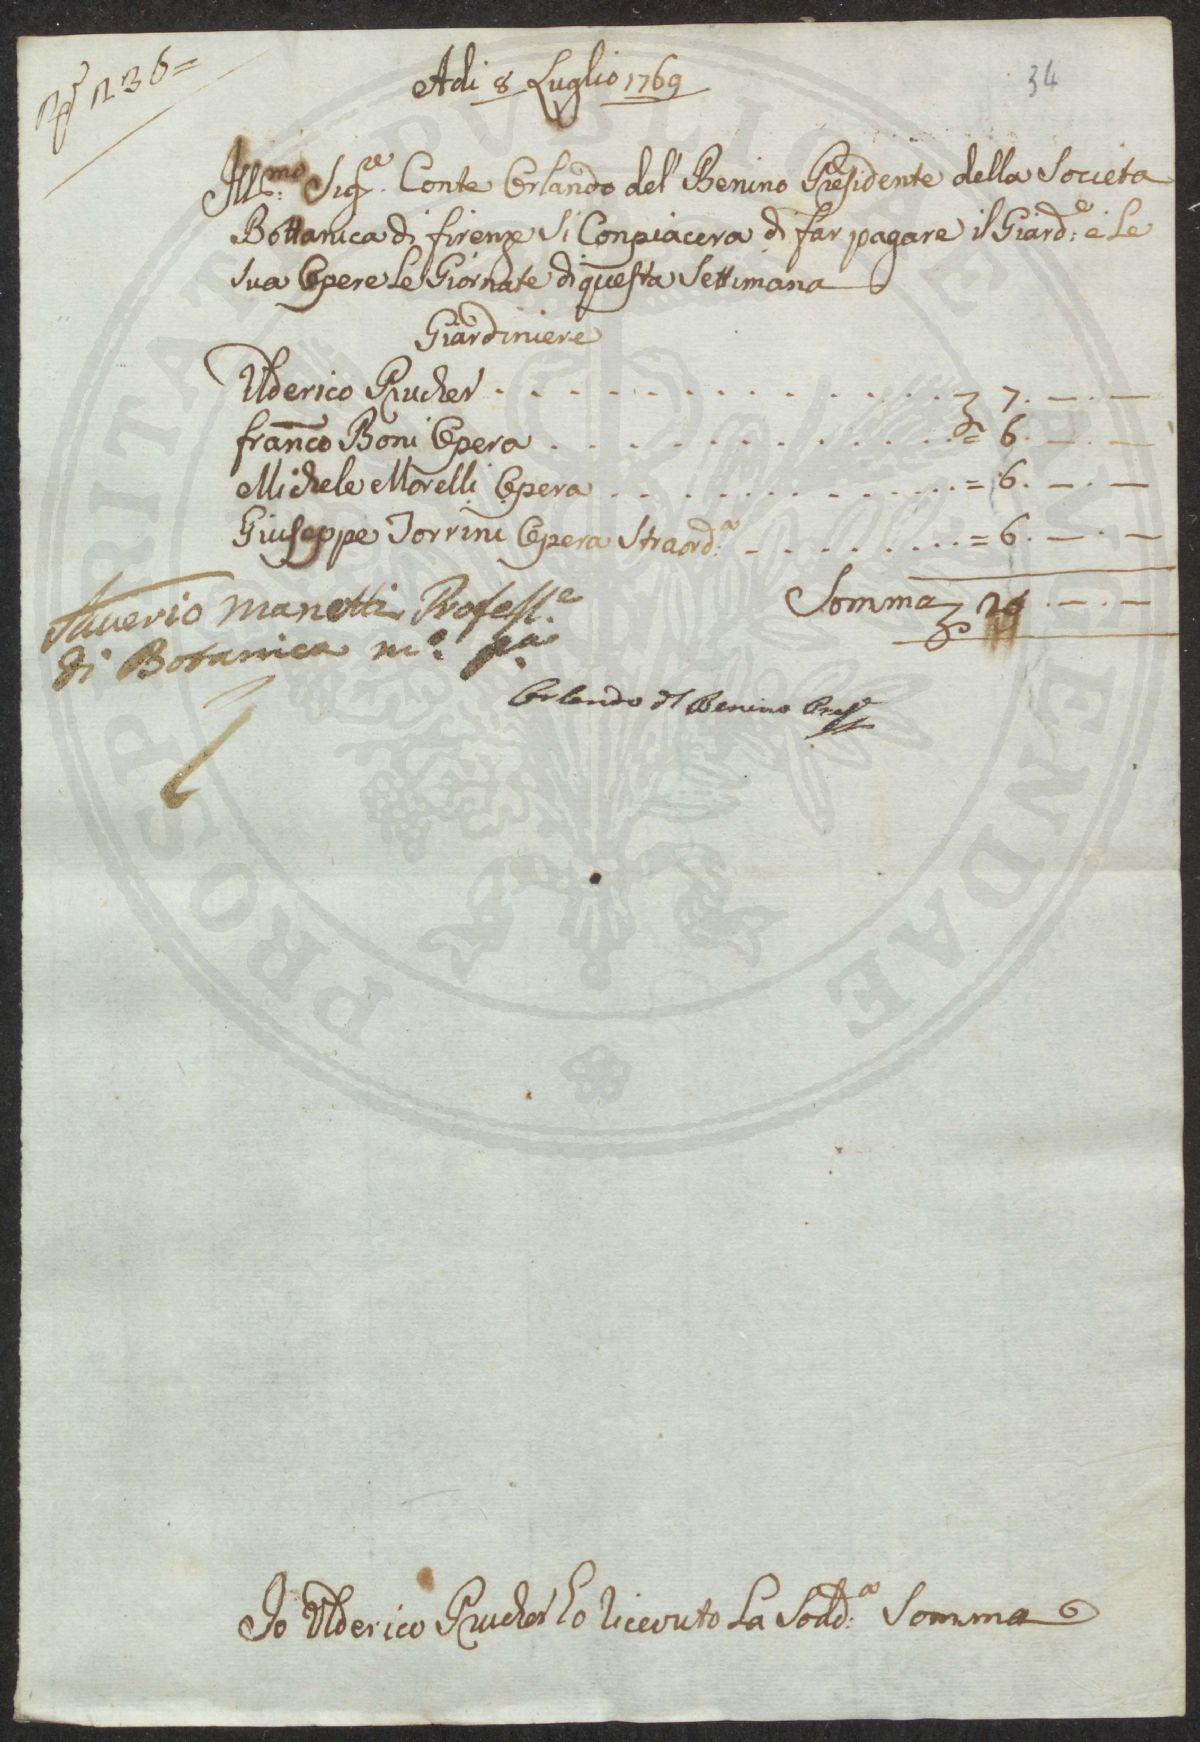 N.º 236=
34
Adi 8 Luglio 1769
Ill.mo Sig.re Conte Orlando del Benino Presidente della Societa
Bottanica di firenze Si Conpiacera di far pagare il Giard.e e Le
sua Opere Le Giornate di questa Settimana
Giardiniere
Ulderico Prucher . . . . . . . . . . . . . . . 7. — . —
franco Boni Opera . . . . . . . . . . . . . = 6. — . —
Michele Morelli Opera . . . . . . . . . . = 6. — . —
Giuseppe Torrini Opera Straord.a . . . . . . . . = 6. — . —
Somma — . —
Saverio Manetti Profess.e
di Botanica m.o p.a
Orlando del Benino Pres.e
Io Ulderico Prucher ho ricevuto La Sodd.a Somma
PROSPERITATI PUBLICAE AUGENDAE